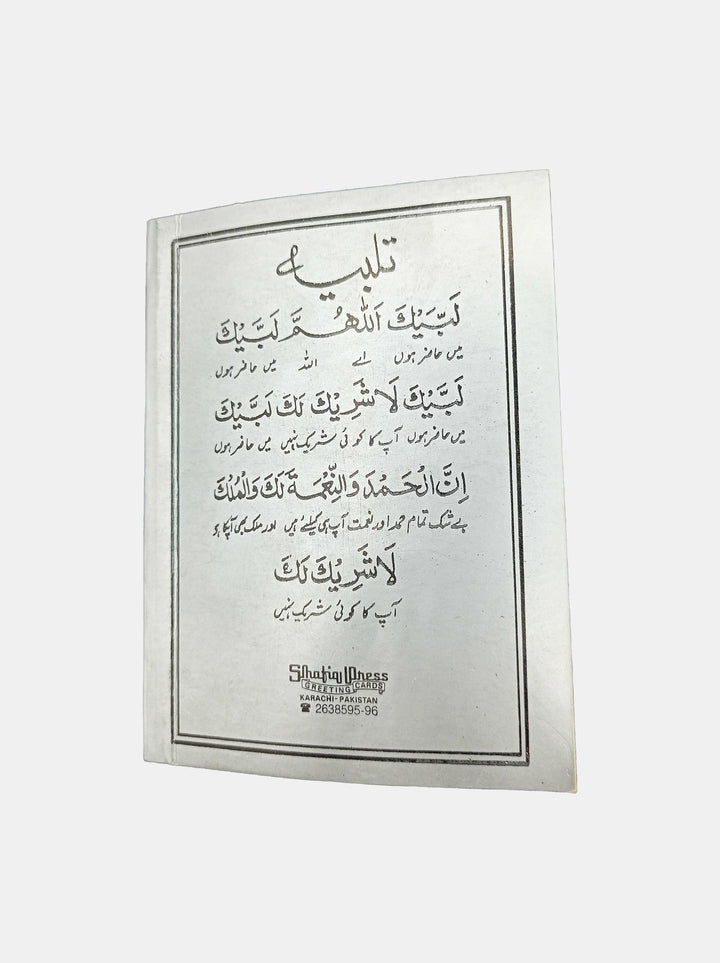 تلبیہ
لَبَّيْكَ اَللّٰهُمَّ لَبَّيْكَ
میں حاضر ہوں اے اللہ میں حاضر ہوں
لَبَّيْكَ لَا شَرِيْكَ لَكَ لَبَّيْكَ
میں حاضر ہوں آپ کا کوئی شریک نہیں میں حاضر ہوں
اِنَّ الْحَمْدَ وَالنِّعْمَةَ لَكَ وَالْمُلْكَ
بے شک تمام حمد اور نعمت آپ ہی کیلئے ہیں اور ملک بھی آپکا ہے
لَا شَرِيْكَ لَكَ
آپ کا کوئی شریک نہیں
Shafiq Press
GREETING CARDS
KARACHI-PAKISTAN
☎ 2638595-96